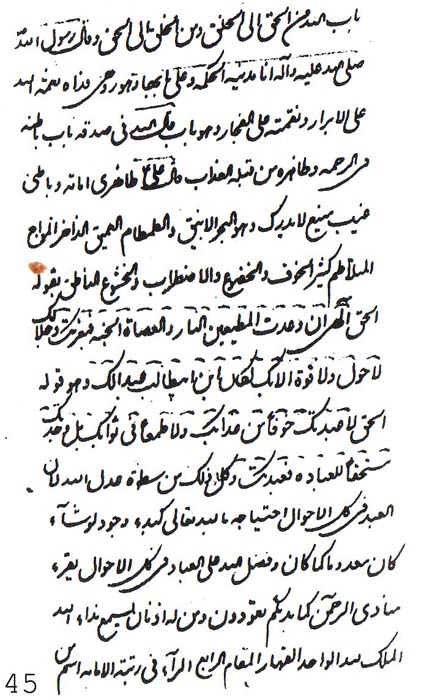 باب الله من الحق الى الخلق و من الخلق الى الحق و قال رسول الله
صلى الله عليه و آله انا مدينة الحكمة و على بابها و هو رحى هذاه نعمة الله
على الابرار و نقمته على الفجار و هو باب قال الله فى صدقه باب باطنه
فى الرحمة و ظاهره من قبله العذاب قال على ع ظاهرى امامة و باطنى
غيب منيع لا يدرك و هو البحر الانيق و الطمطام العميق الذاخر المواج
المتلاطم كثير الخوف و الخضوع و الاضطراب و الخشوع الناطق بقوله
الحق الهى ان وعدت المطيعين النار و العصاة الجنة فبعزتك و جلالك
لا حول و لا قوة الا بك لكان ابن ابيطالب عبدا لك و هو قوله
الحق لا عبدتك خوفا من عذابك و لا طمعا فى ثوابك بل وجدتك
مستحقا للعبادة فعبدتك و كل ذلك من سطوة عدل الله لان
العبد فى كل الاحوال احتياجه بالله تعالى كبدء وجوده لو شاء
كان معدوما كما كان و فضل الله على العباد فى كل الاحوال يقرء
منادى الرحمن كما بدئكم تعودون و من له اذنان يسمع نداء الله
الملك لله الواحد القهار المقام الرابع المرآة فى رتبة الامامة اسم من
45